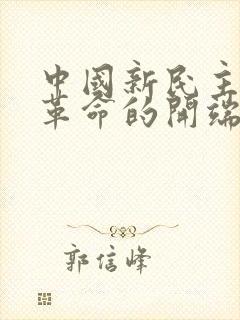 中國新民主
革命的開端
郭信峰